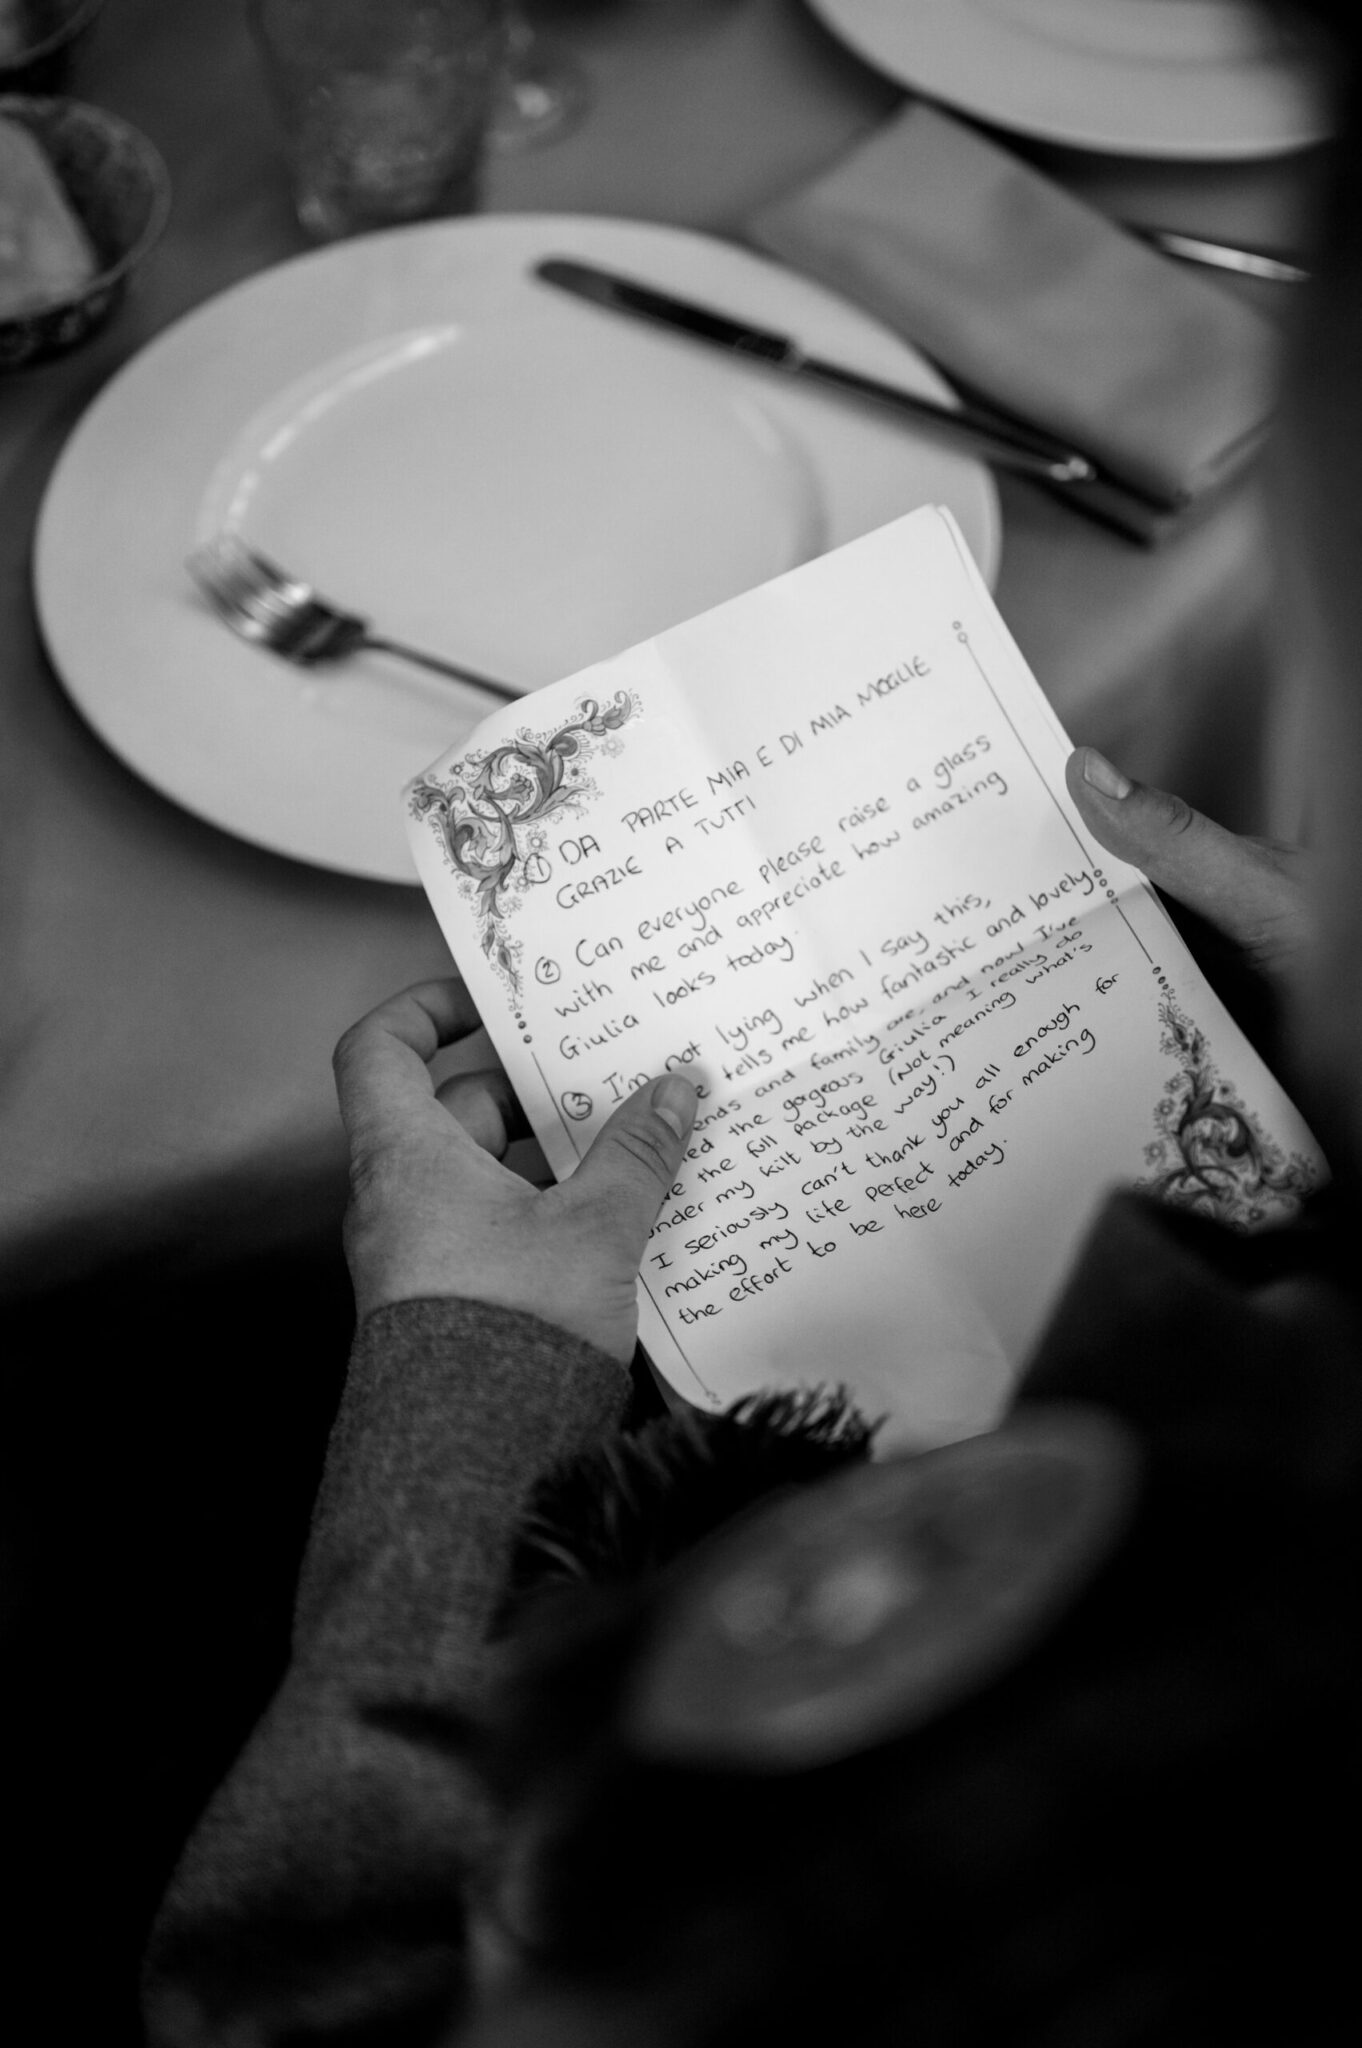 ① DA PARTE MIA E DI MIA MOGLIE
GRAZIE A TUTTI
② Can everyone please raise a glass
with me and appreciate how amazing
Giulia looks today.
③ I'm not lying when I say this,
tells me how fantastic and lovely
and family are, and now I've
the gorgeous Giulia I really do
the full package (Not meaning what's
under my kilt by the way!)
I seriously can't thank you all enough for
making my life perfect and for making
the effort to be here today.